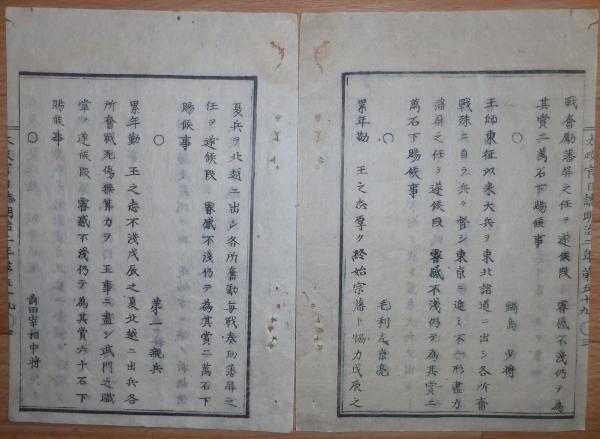 戰奮勵藩屏之任ヲ遂候段 叡感不淺仍テ為
其賞二萬石下賜候事
○
鍋島 少將
王師東征以來大兵ヲ東北諸道ニ出シ各所奮
戰殊ニ自ラ兵ヲ督シ東京ニ進ミ不一形盡力
藩屏之任ヲ遂候段 叡感不淺仍テ為其賞二
萬石下賜候事
○
毛利左京亮
累年勤 王之志厚ク終始宗藩ト協力戊辰之
太政官日誌明治二年第五十九 ○三
夏兵ヲ北越ニ出シ各所奮勵每戰奏功藩屏之
任ヲ遂候段 叡感不淺仍テ為其賞二萬石下
賜候事
○
第一 親兵
累年勤 王之志不淺戊辰之夏北越ニ出兵各
所奮戰死傷無算力ヲ 王事ニ盡シ武門之職
掌ヲ遂候段 叡感不淺仍テ為其賞六千石下
賜候事
○
前田宰相中將